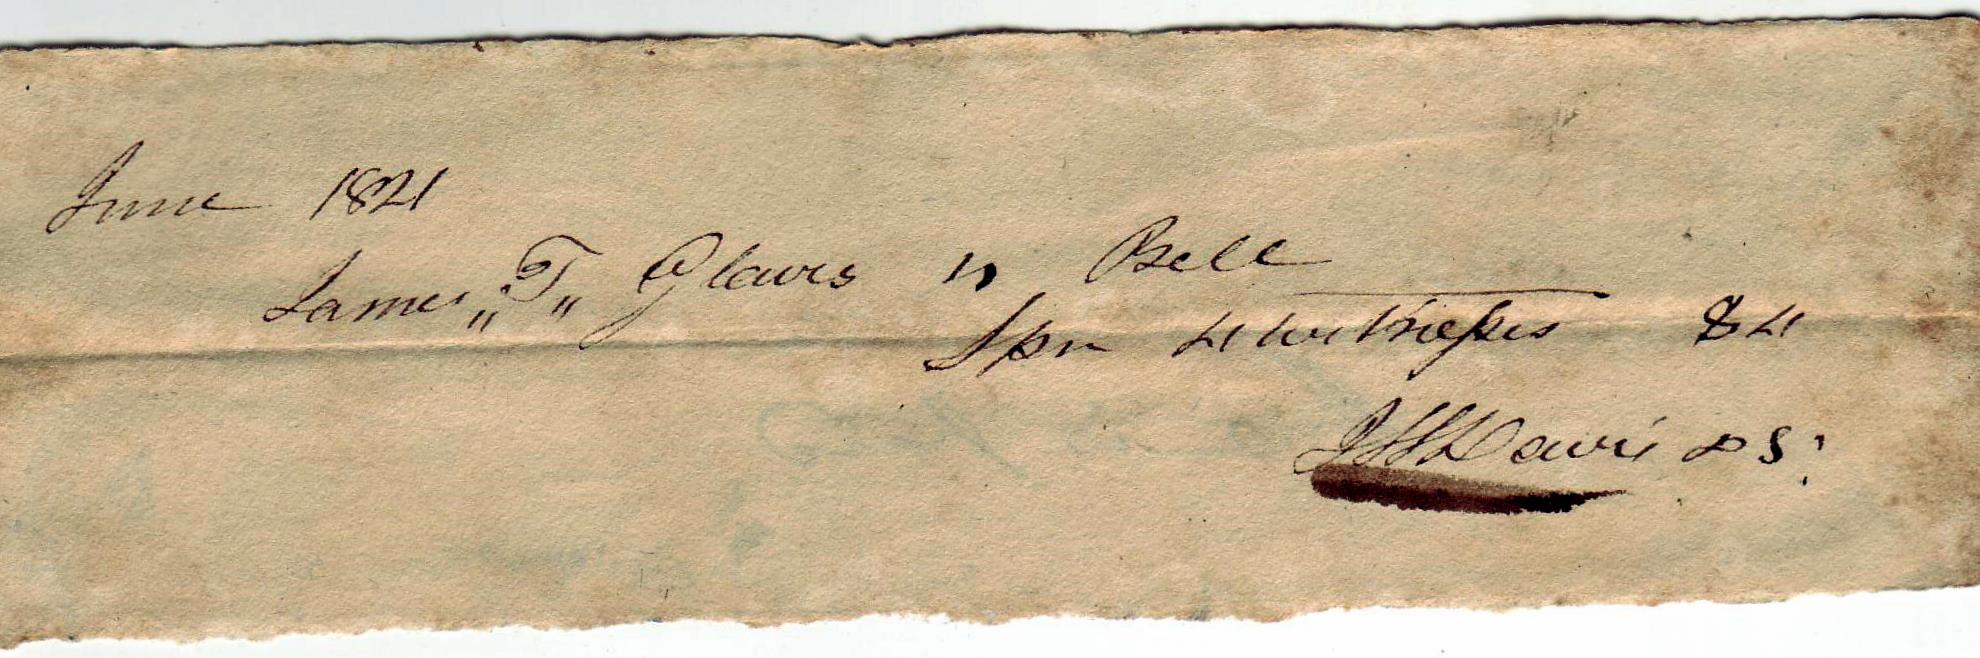 June 1821
James "T" Glaves vs Bell
Spn 4 witnesses $4
Davis DS.